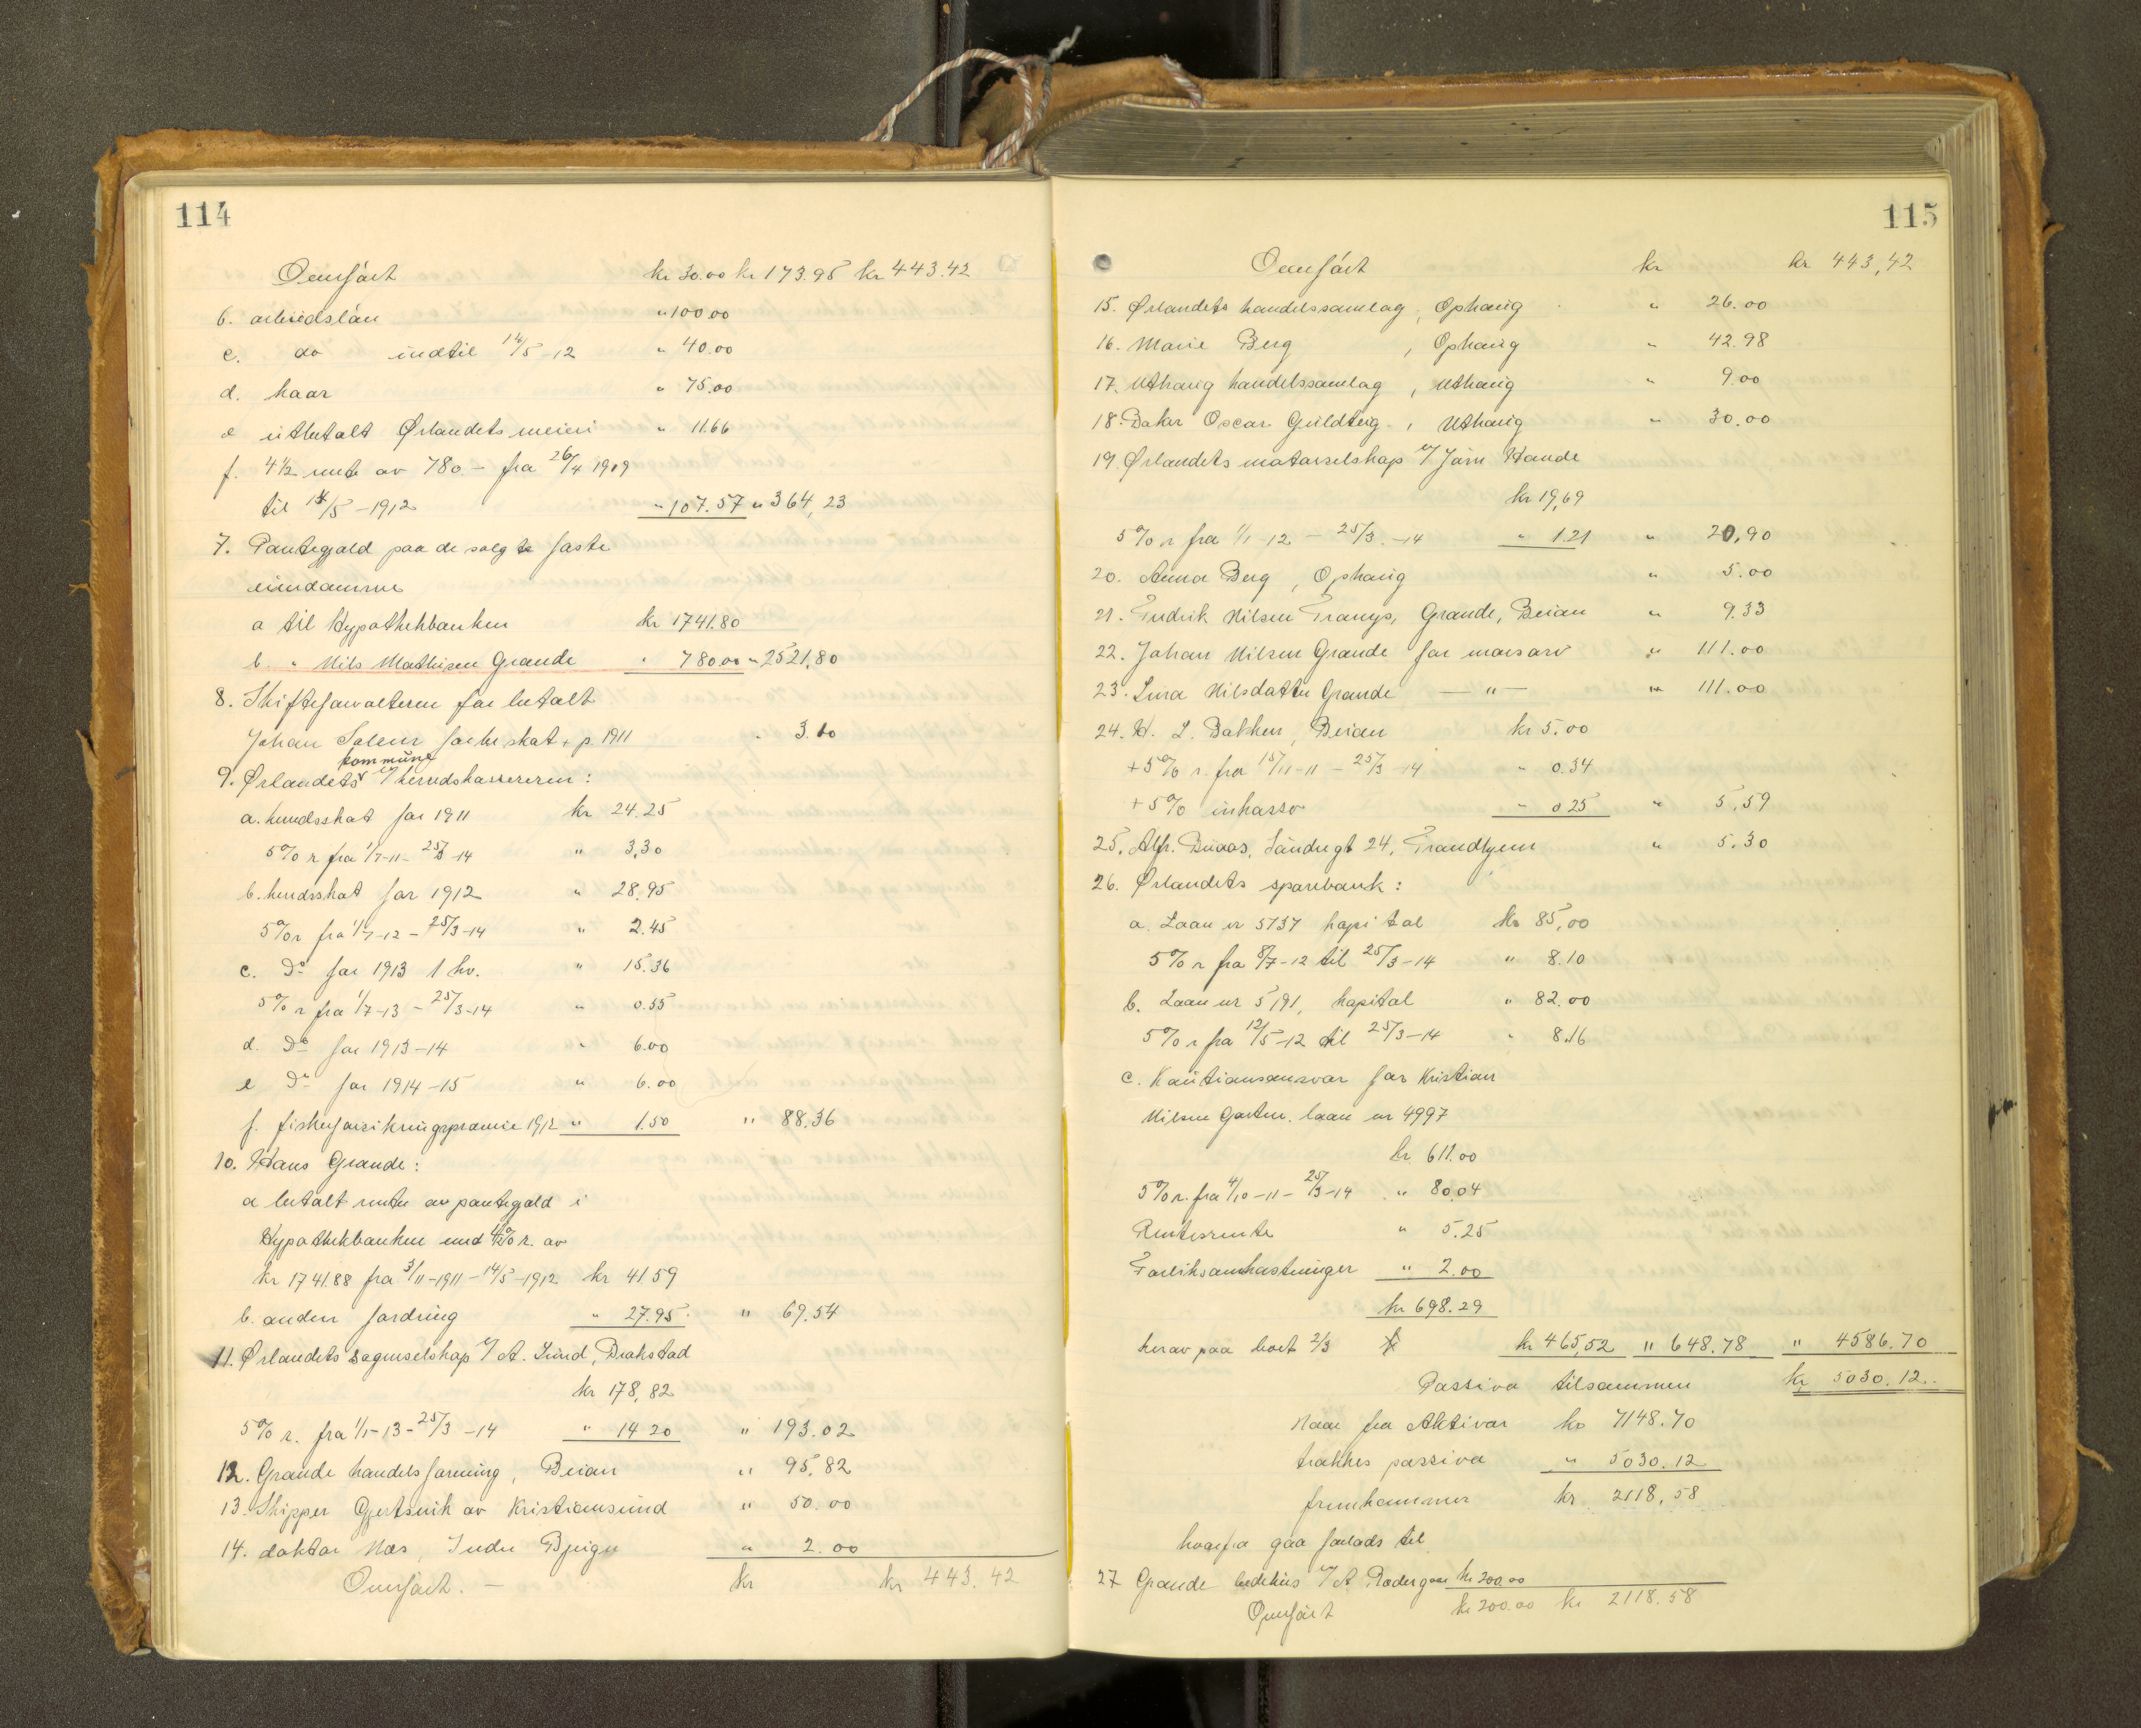 114
Overført kr 30.00 kr 173.95 kr 443.42
b. arbeidsløn " 100.00
c. do indtil 14/5-12 " 40.00
d. haar " 75.00
e utbetalt Ørlandets meieri " 11.66
f. 4½ rente av 780.- fra 26/4 1909
til 14/5-1912 " 107.57 " 364,23
7. Pantegjæld paa de solgte faste
eiendomme
a til Hypothekbanken kr 1741.80
b. " Nils Mathisen Grande " 780.00 " 2521,80
8. Skifteforvalteren for betalt
Johan Solem for hr skat + p. 1911 " 3.10
9. Ørlandets kommune v/ herredskassereren:
a. herredsskat for 1911 kr 24.25
5% r fra 1/7-11- 25/3-14 " 3,30
b. herredsskat for 1912 " 28.95
5% r fra 1/7-12 - 25/3-14 " 2.45
c. Do for 1913 1 hv. " 15.36
5% r fra 1/7-13 - 25/3-14 " 0.55
d. Do for 1913-14 " 6.00
e Do for 1914-15 " 6.00
f. fiskeforsikringspræmie 1912 " 1.50 " 88.36
10. Hans Grande:
a betalt rente av pantegjæld i
Hypothekbanken med 4½% r. av
kr 1741.88 fra 3/11-1911 - 14/5-1912 kr 41.59
b. anden fordring " 27.95 " 69.54
11. Ørlandets sagmselskap v/ A. Sund, Brækstad
kr 178,82
5% r. fra 1/1-13- 25/3-14 " 14 20 " 193.02
12. Grande handelsforening, Beian " 95,82
13. Skipper Gjertsvik av Kristiansund " 50.00
14. doktor Næs, Indre Bjugn " 2.00
Overført. - kr kr 443.42
115
Overført kr kr 443,42
15. Ørlandets handelssamlag, Ophaug " 26.00
16. Marie Berg, Ophaug " 42.98
17. Uthaug handelssamlag, Uthaug " 9.00
18. Baker Oscar Guldteig, Uthaug " 30.00
19. Ørlandets motorselskap v/ Jørn Hovde
kr 19,69
5% r fra 1/1-12 - 25/3-14 " 1.21 " 20,90
20. Anna Berg, Ophaug " 5.00
21. Fredrik Nilsen Tranys, Grande, Beian " 9.33
22. Johan Nilsen Grande for morsarv " 111.00
23. Lina Nilsdatter Grande - " - " 111.00
24. H. L. Bakken, Beian kr 5.00
+ 5% r. fra 15/11-11 - 25/3-14 " 0.34
+ 5% inkasso " 0 25 " 5,59
25. Alfr. Buaas, Søndregt 24, Trondhjem " 5.30
26. Ørlandets sparebank:
a. Laan nr 5737 kapital kr 85,00
5% r fra 8/7-12 til 25/3-14 " 8.10
b. Laan nr 5191, kapital " 82.00
5% r fra 12/5-12 til 25/3-14 " 8.16
c. Kautionsansvar for Kristian
Nilsen Garten. laan nr 4997
kr. 611.00
5% r. fra 4/10-11- 25/3-14 " 80.04
Rentesrente " 5.25
Forliksomkostninger " 2.00
kr 698.29
herav paa boet 2/3 kr 465,52 " 648.78 " 4586.70
Passiva tilsammen kr 5030.12.
Naar fra Aktivar kr 7148.70
trækkes passiva " 5030.12
fremkommer kr 2118,58
hvorfra gaa forlods til
27 Grande bedehus v/ A. Rødergaar kr 200.00
Overført kr 200.00 kr 2118.58